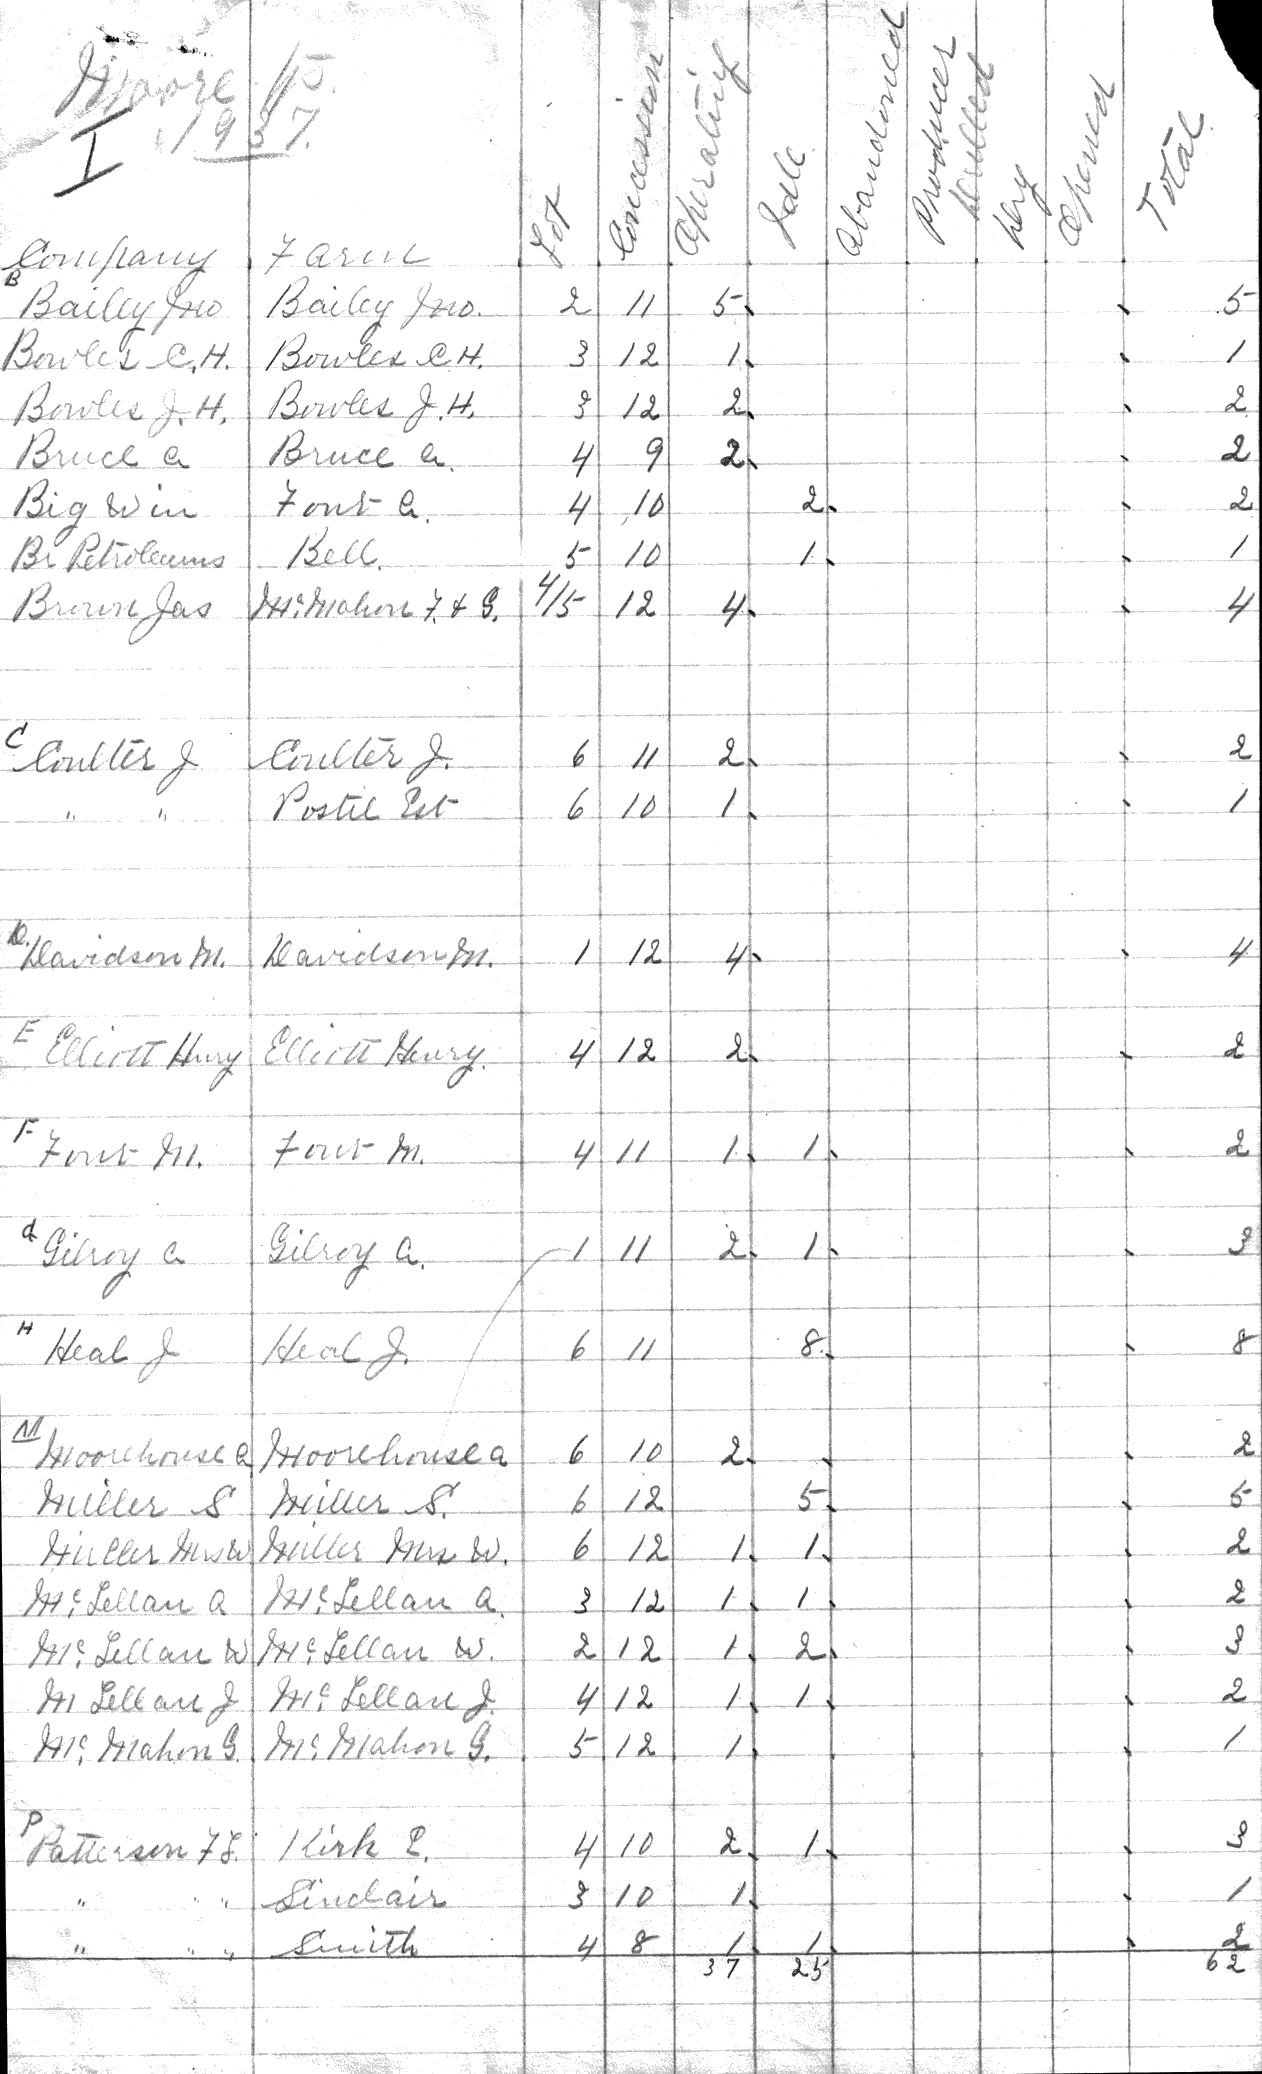 Moore 15.
1937.
I
Company Farm Lot Concession Operating Idle Abandoned Producer pulled Dry Opened Total
B
Bailey Jno Bailey Jno. 2 11 5 5
Bowles C.H. Bowles C.H. 3 12 1 1
Bowles J.H. Bowles J.H. 3 12 2 2
Bruce A Bruce A. 4 9 2 2
Big Win Font A. 4 10 2 2
Br Petroleums Bell. 5 10 1 1
Brown Jas McMahon F. & G. 4/5 12 4 4
C
Coulter J Coulter J. 6 11 2 2
" " Postil Est 6 10 1 1
D.
Davidson M. Davidson M. 1 12 4 4
E
Elliott Henry Elliott Henry. 4 12 2 2
F
Font M. Font M. 4 11 1 1 2
G
Gilroy A Gilroy A. 1 11 2 1 3
H
Heal J Heal J. 6 11 8 8
M
Moorehouse A Moorehouse A 6 10 2 2
Miller S Miller S. 6 12 5 5
Miller Mrs W Miller Mrs W. 6 12 1 1 2
Mc.Lellan A Mc.Lellan A. 3 12 1 1 2
Mc.Lellan W Mc.Lellan W. 2 12 1 2 3
M Lellan J Mc Lellan J. 4 12 1 1 2
Mc.Mahon G. Mc.Mahon G. 5 12 1 1
P
Patterson F L. Kirk E. 4 10 2 1 3
" " " Sinclair 3 10 1 1
" " " Smith 4 8 1 1 2
37 25 62